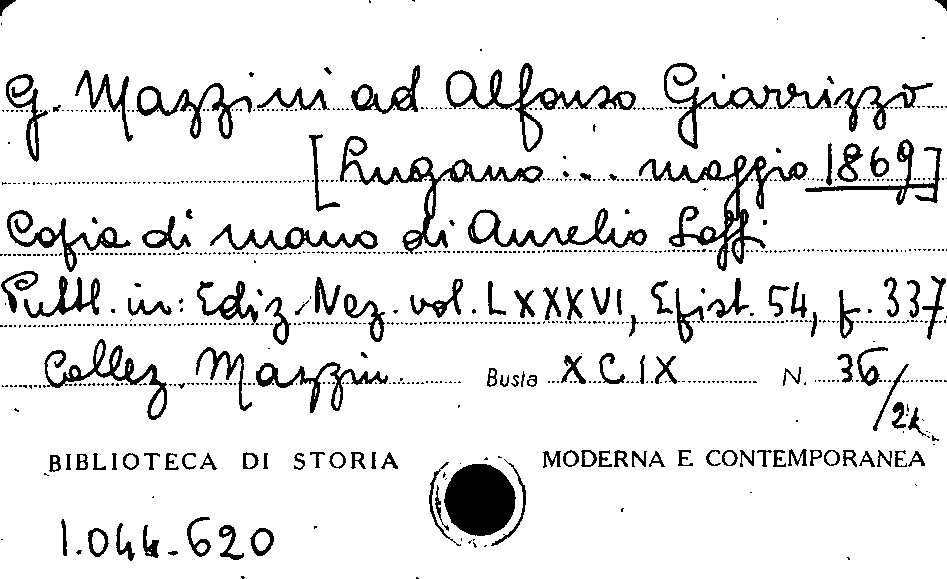 G. Mazzini ad Alfonso Giarrizzo
[Lugano ... maggio 1869]
Copia di mano di Aurelio Saffi
Pubbl. in: Ediz. Naz. vol. LXXXVI, Epist. 54, p. 337
Collez. Mazzini Busta XCIX N. 36
BIBLIOTECA DI STORIA MODERNA E CONTEMPORANEA
1.044.620